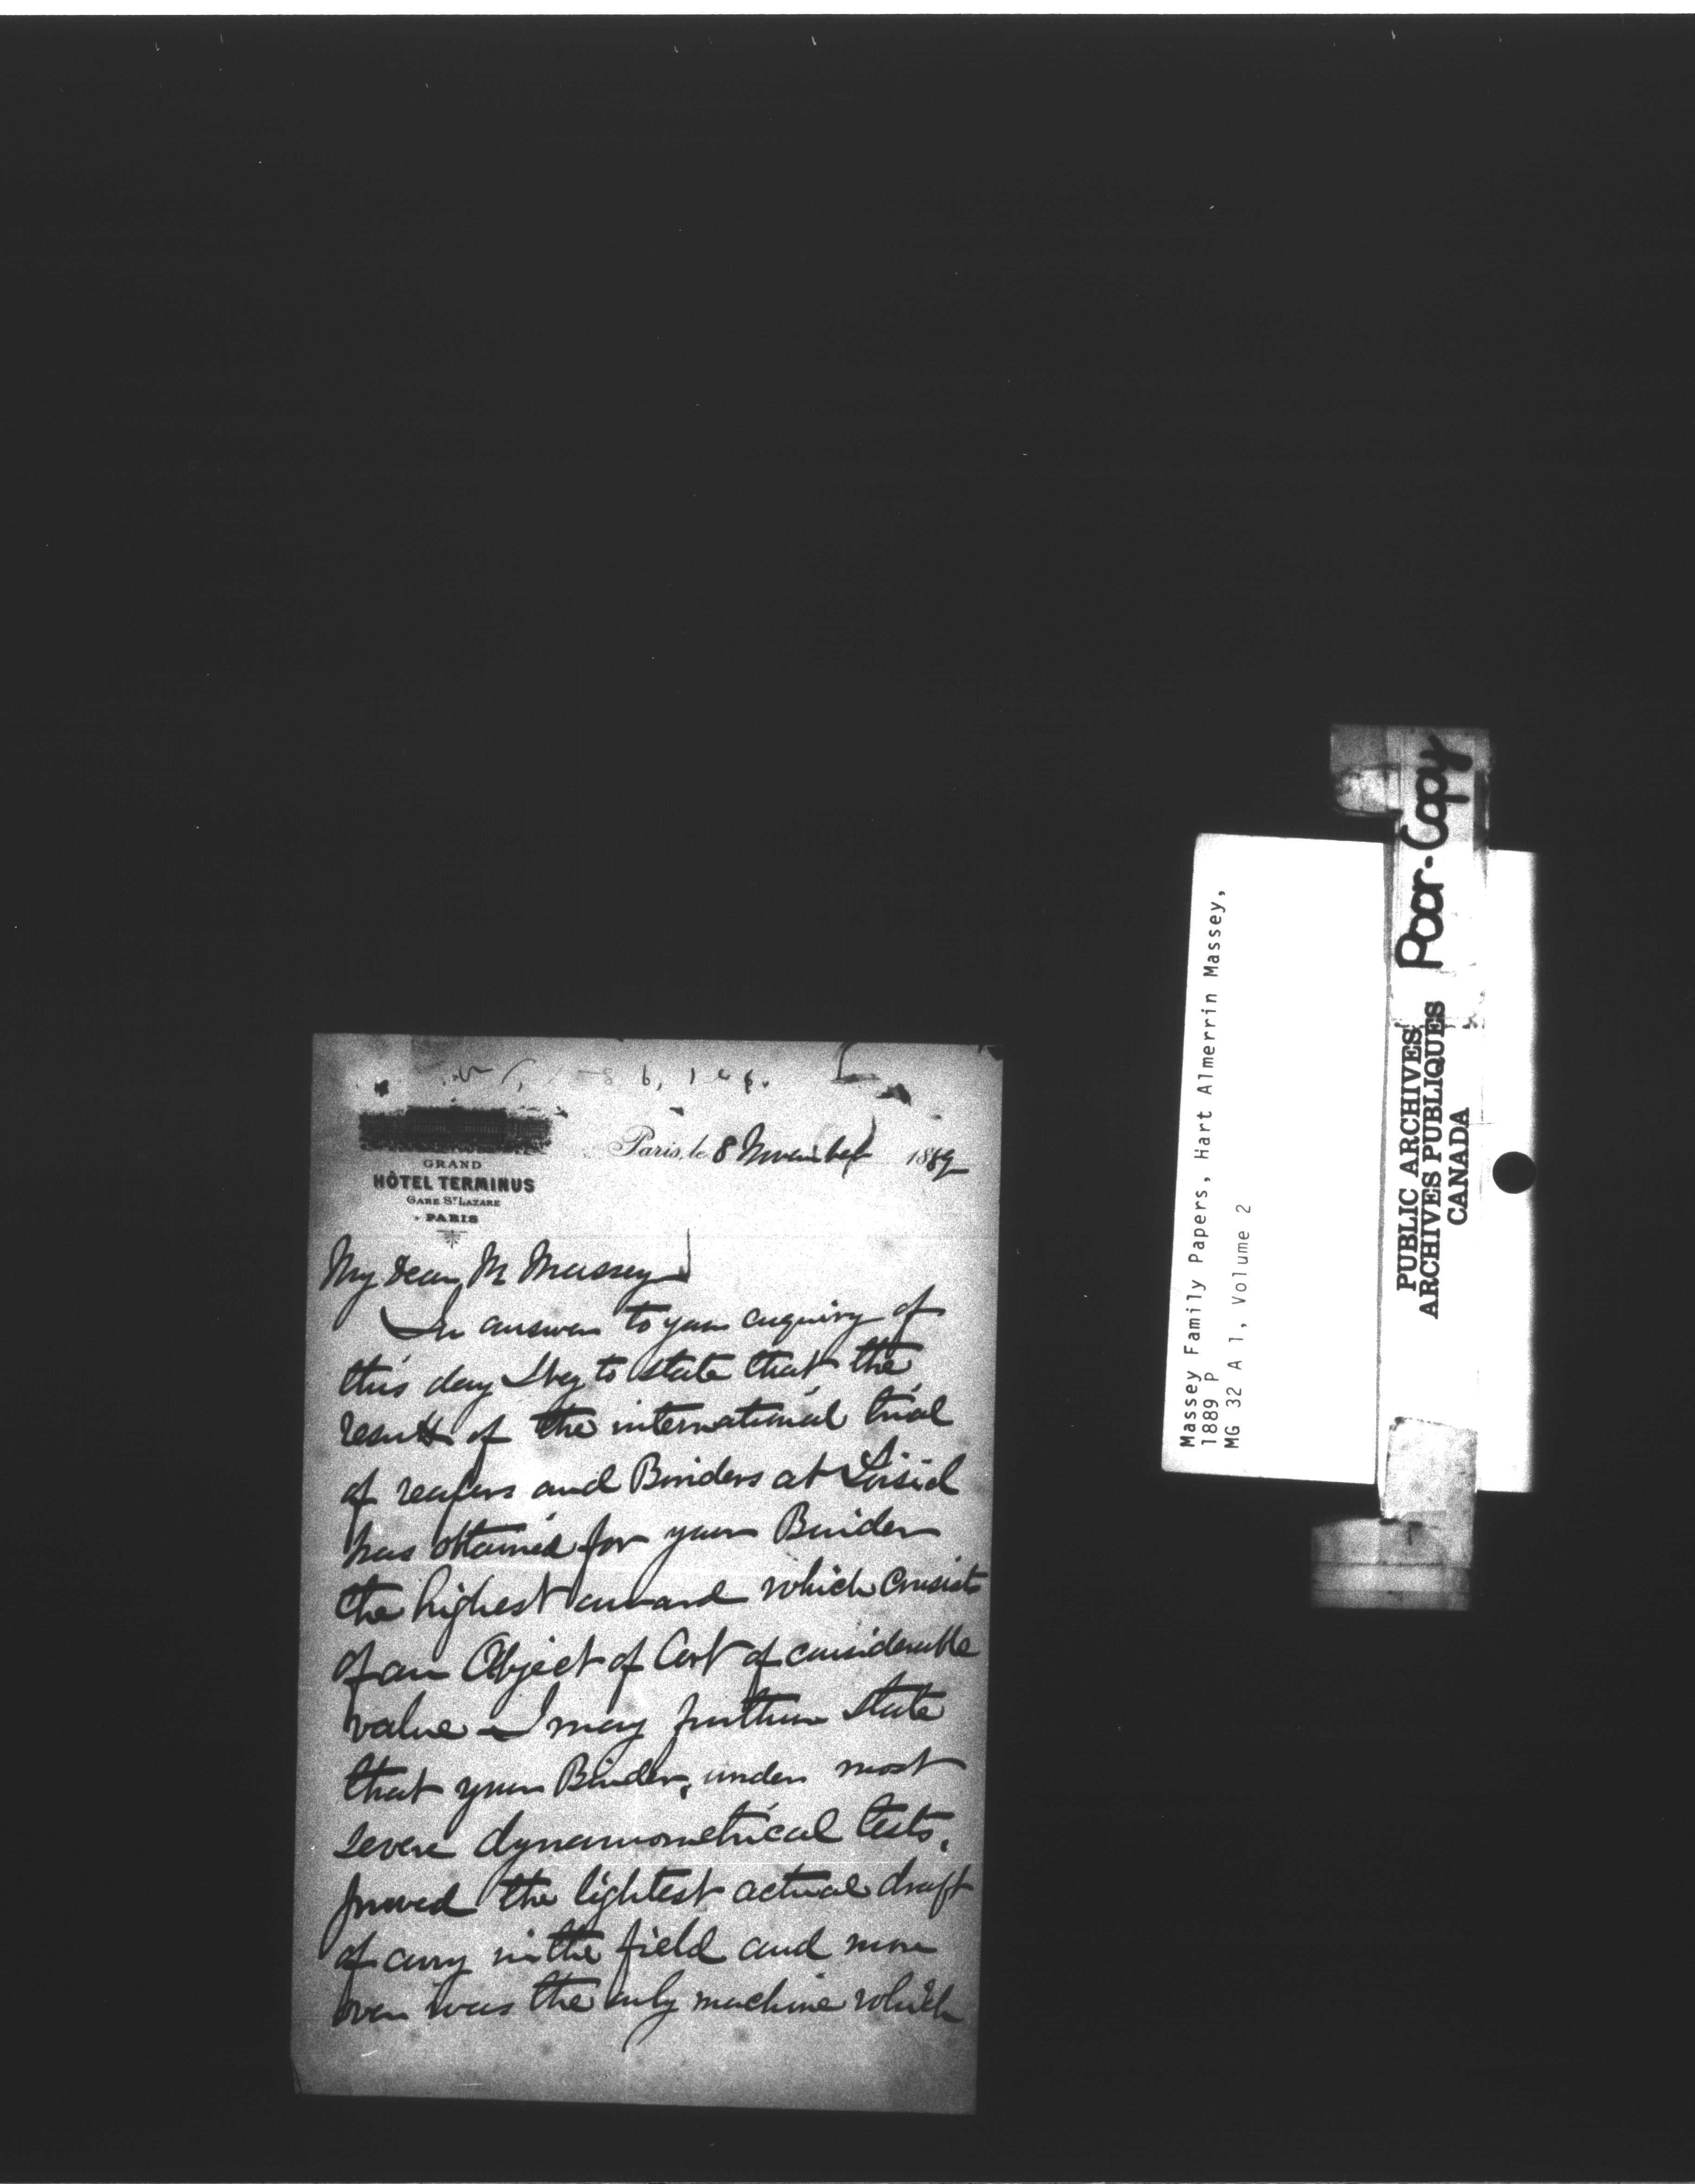 GRAND
HÔTEL TERMINUS
GARE ST LAZARE
PARIS
Paris, le 8 November 1889
My dear Mr Massey
In answer to your enquiry of
this day I beg to state that the
result of the international trial
of reapers and Binders at
has obtained for your Binder
the highest award which consists
of an Object of Art of considerable
value - I may further state
that your Binder, under most
severe dynamometrical tests,
proved the lightest actual draft
of any in the field and more
over was the only machine which
Massey Family Papers, Hart Almerrin Massey,
1889 P
MG 32 A 1, Volume 2
PUBLIC ARCHIVES
ARCHIVES PUBLIQUES
CANADA
Poor-Copy